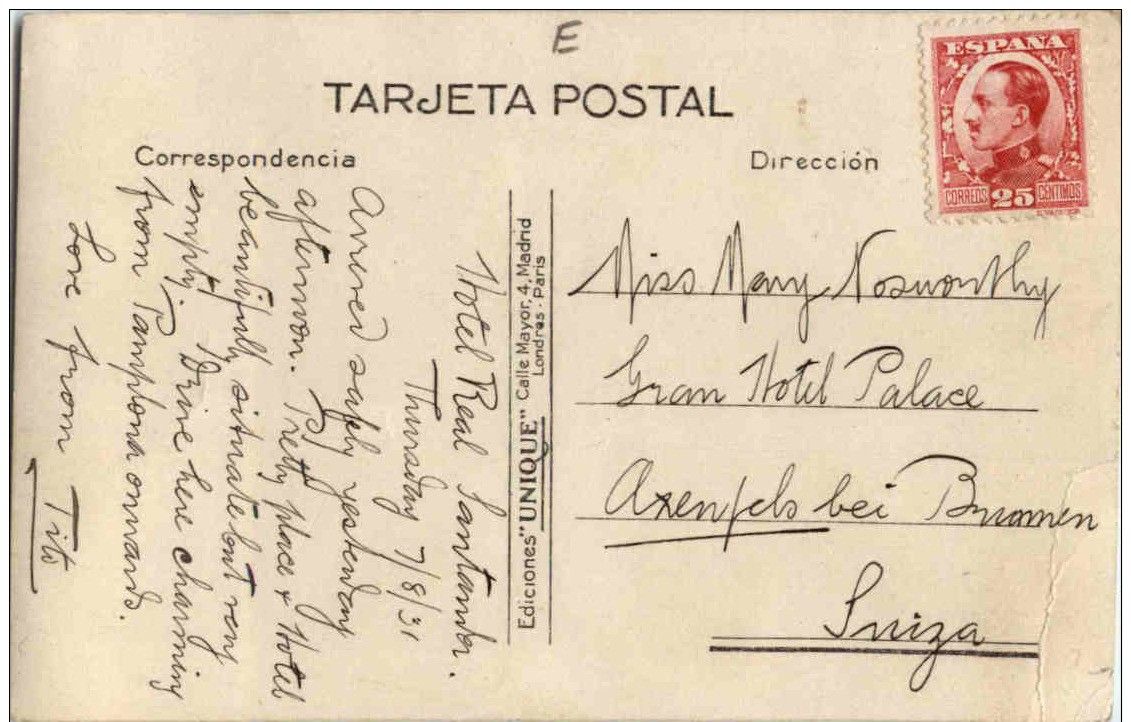 E
TARJETA POSTAL
Correspondencia
Dirección
ESPAÑA
CORREOS 25 CENTIMOS
Hotel Real Santander.
Thursday 7/8/31
Arrived safely yesterday
afternoon. Pretty place & Hotel
beautifully situate but very
empty. Drive here charming
from Pamplona onwards.
Love from Tito
Ediciones "UNIQUE" Calle Mayor, 4, Madrid
Londres - Paris
Miss Mary Nosworthy
Gran Hotel Palace
Axenfels bei Brunnen
Suiza